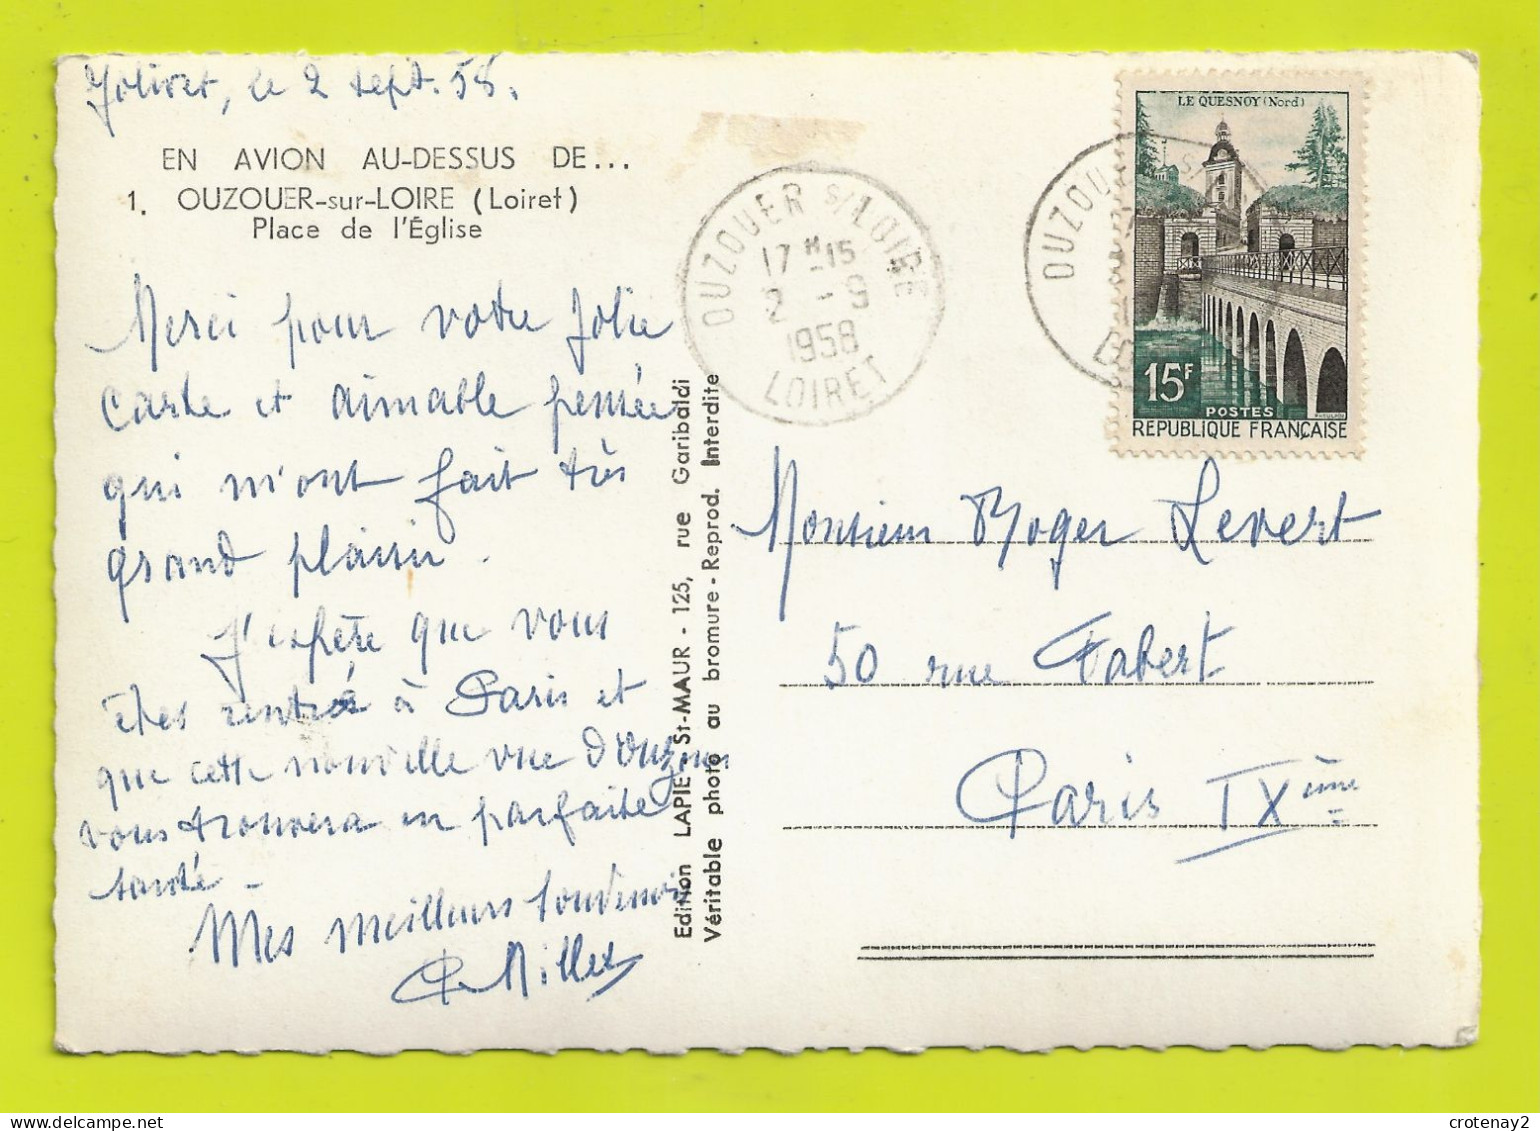 Jolivet, le 2 sept. 58.
EN AVION AU-DESSUS DE...
1. OUZOUER-sur-LOIRE (Loiret)
Place de l'Église
Merci pour votre jolie
carte et aimable pensée
qui m'ont fait très
grand plaisir.
J'espère que vous
êtes rentré à Paris et
que cette nouvelle vue d'Ouzouer
vous trouvera en parfaite
santé -
Mes meilleurs souvenirs
Millet
Edition LAPIE St-MAUR - 125, rue Garibaldi
Véritable photo au bromure - Reprod. Interdite
OUZOUER S/LOIRE
17 H 15
2 - 9
1958
LOIRET
OUZOUER S/
LE QUESNOY (Nord)
15F
POSTES
REPUBLIQUE FRANÇAISE
Monsieur Roger Levert
50 rue Fabert
Paris IXème
crotenay2